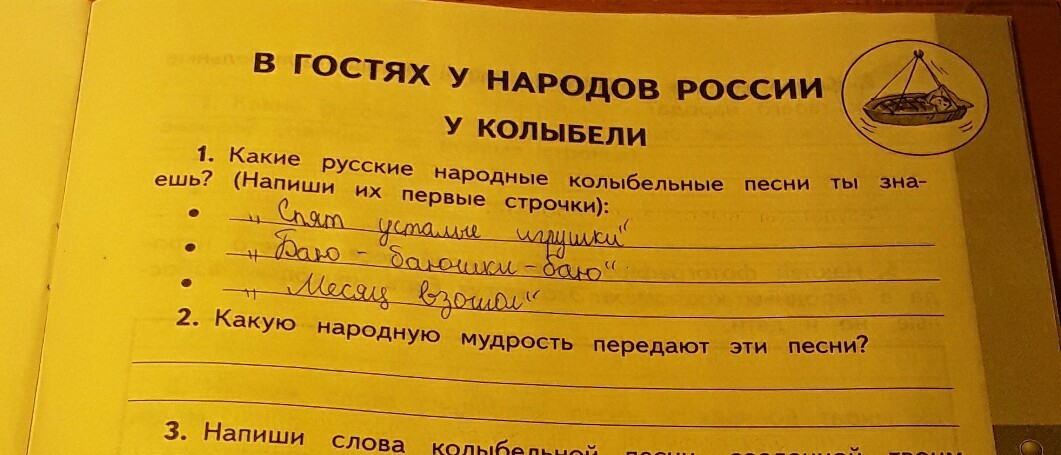 В ГОСТЯХ У НАРОДОВ РОССИИ
У КОЛЫБЕЛИ
1. Какие русские народные колыбельные песни ты зна-
ешь? (Напиши их первые строчки):
• „Спят усталые игрушки“
• „Баю - баюшки - баю“
• „Месяц взошол“
2. Какую народную мудрость передают эти песни?
3. Напиши слова колыбельной песни,